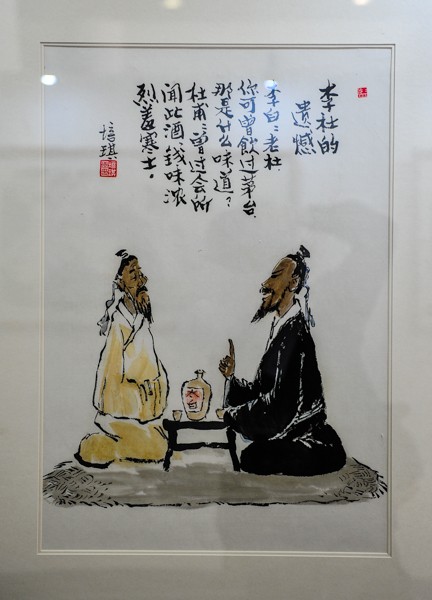 李杜的
遗憾
李白：老杜
你可曾飲过茅台
那是什么味道？
杜甫：曾过会所
闻此酒，钱味浓
烈羞寒士。
培琪